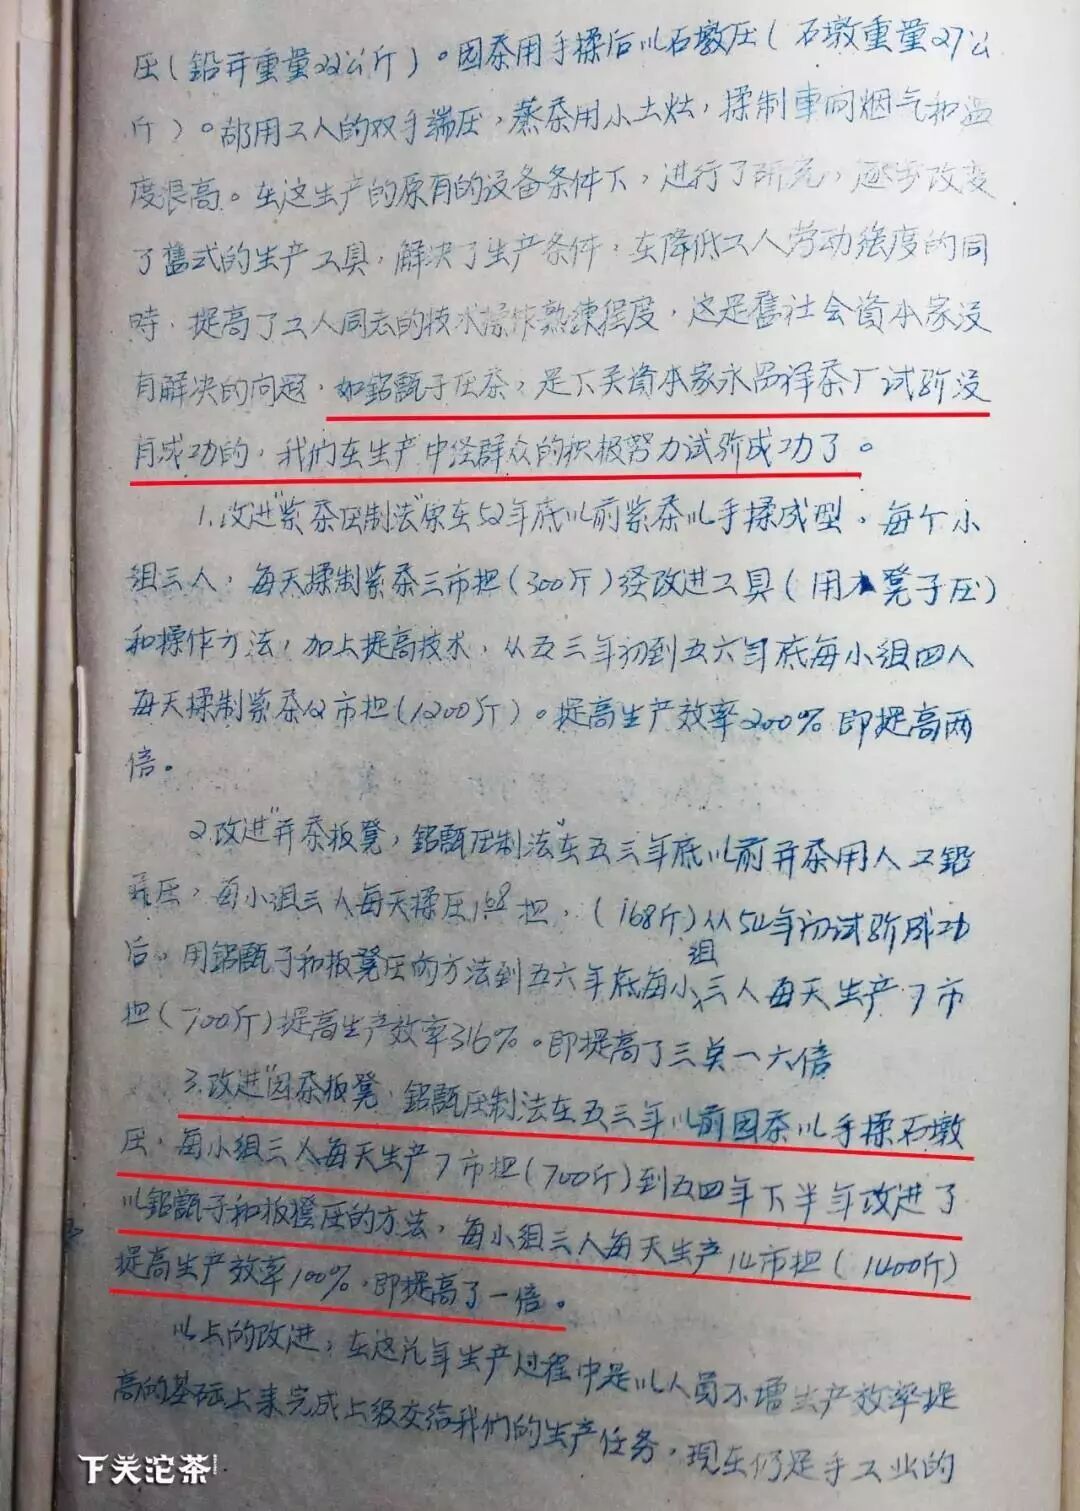 压(铅并重量22公斤)。园茶用手揉后以石墩压(石墩重量27公
斤)。都用工人的双手端压,蒸茶用小土灶,揉制車间烟气和温
度很高。在这生产的原有的设备条件下,进行了研究,逐步改变
了舊式的生产工具,解决了生产条件,在降低工人劳动强度的同
時,提高了工人同志的技术操作熟练程度,这是舊社会資本家没
有解决的问题,如铝甑子压茶,是下关資本家永昌祥茶厂试验没
有成功的,我们在生产中经群众的积极努力试验成功了。
1.改进"紧茶压制法"原在52年底以前紧茶以手揉成型,每个小
组三人,每天揉制紧茶三市担(300斤)经改进工具(用木凳子压)
和操作方法,加上提高技术,从五三年初到五六年底每小组四人
每天揉制紧茶12市担(1200斤)。提高生产效率200%即提高两
倍。
2.改进"并茶板凳,铝甑压制法"在五三年底以前并茶用人工铅
压,每小组三人每天揉压1.68担,(168斤)从54年初试验成功
后,用铝甑子和板凳压的方法到五六年底每小组三人每天生产7市
担(700斤)提高生产效率316%。即提高了三点一六倍
3.改进"园茶板凳,铝甑压制法在五三年以前园茶以手揉石墩
压,每小组三人每天生产7市担(700斤)到五四年下半年改进了
以铝甑子和板凳压的方法,每小组三人每天生产14市担(1400斤)
提高生产效率100%,即提高了一倍。
以上的改进,在这几年生产过程中是以人员不增生产效率提
高的基础上来完成上级交给我们的生产任务,现在仍是手工业的
下关沱茶